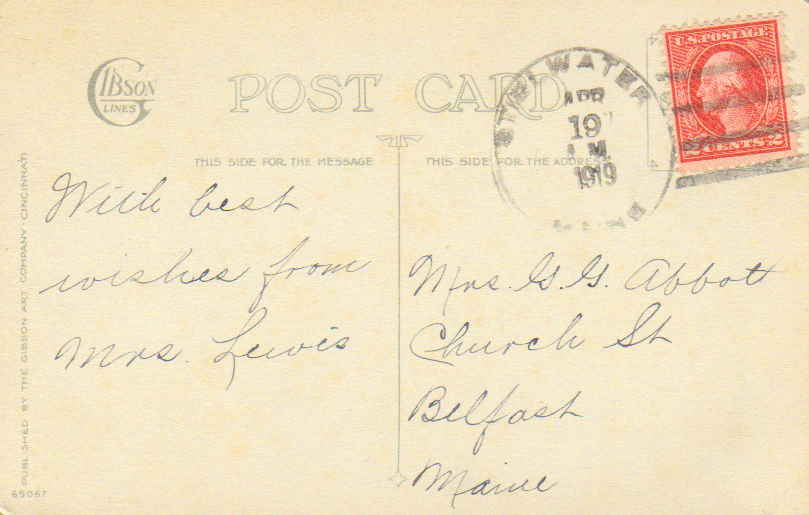 GIBSON
LINES
POST CARD
THIS SIDE FOR THE MESSAGE
THIS SIDE FOR THE ADDRESS
STILLWATER
APR
19
A.M.
1919
MAINE
U.S. POSTAGE
2 CENTS 2
With best
wishes from
Mrs. Lewis
Mrs. G. G. Abbott
Church St
Belfast
Maine
PUBLISHED BY THE GIBSON ART COMPANY, CINCINNATI
65067